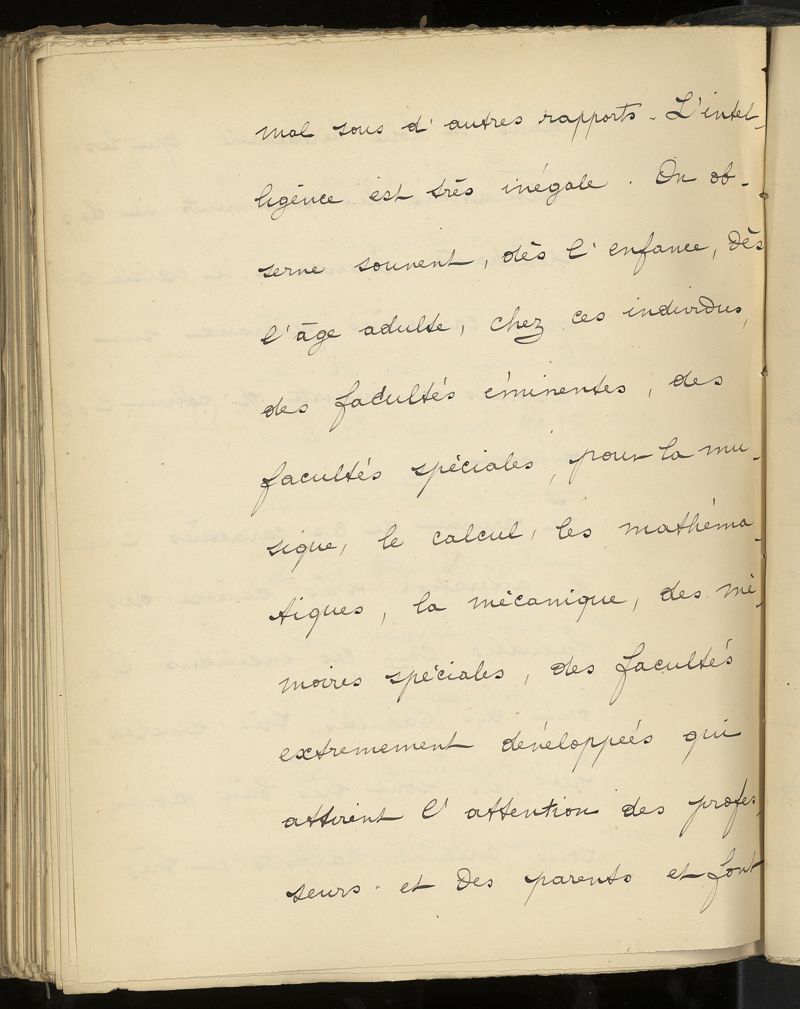 mal sous d'autres rapports. L'intel-
ligence est très inégale. On ob-
serve souvent, dès l'enfance, dès
l'âge adulte, chez ces individus,
des facultés éminentes, des
facultés spéciales, pour la mu-
sique, le calcul, les mathéma-
tiques, la mécanique, des mé-
moires spéciales, des facultés
extremement développeés qui
attirent l'attention des profes-
seurs et des parents et font